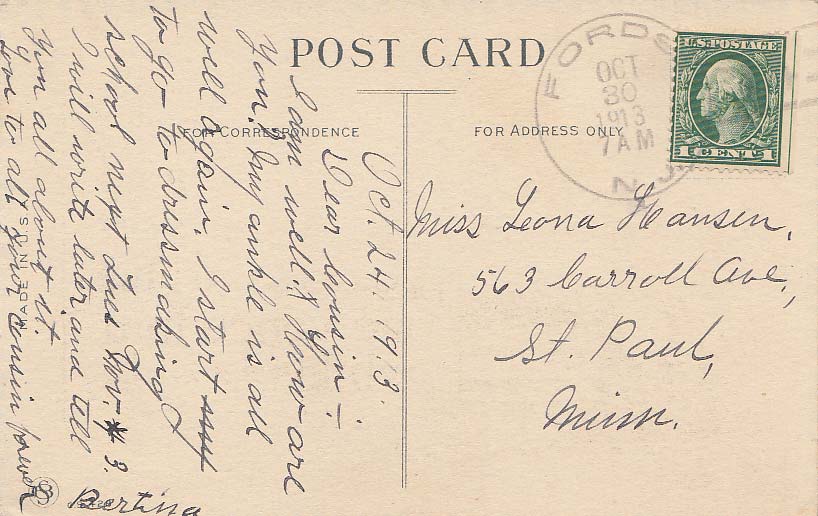 POST CARD
FOR CORRESPONDENCE
FOR ADDRESS ONLY
FORDS
OCT
30
1913
7 AM
N.J.
U.S. POSTAGE
1 CENT 1
Oct. 24, 1913.
Dear Cousin:-
I am well. How are
You? My ankle is all
well again. I start
to go to dressmaking
school next Tues Nov. 3.
I will write later and tell
You all about it.
Love to all Your cousin forever
Bertina
Miss Leona Hansen,
563 Carroll Ave,
St. Paul,
Minn.
MADE IN U.S.A.